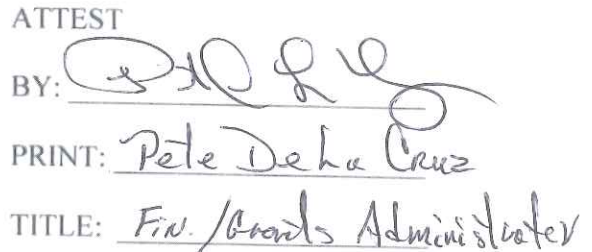 ATTEST
BY:
PRINT: Pete De La Cruz
TITLE: Fin. /Grants Administrator